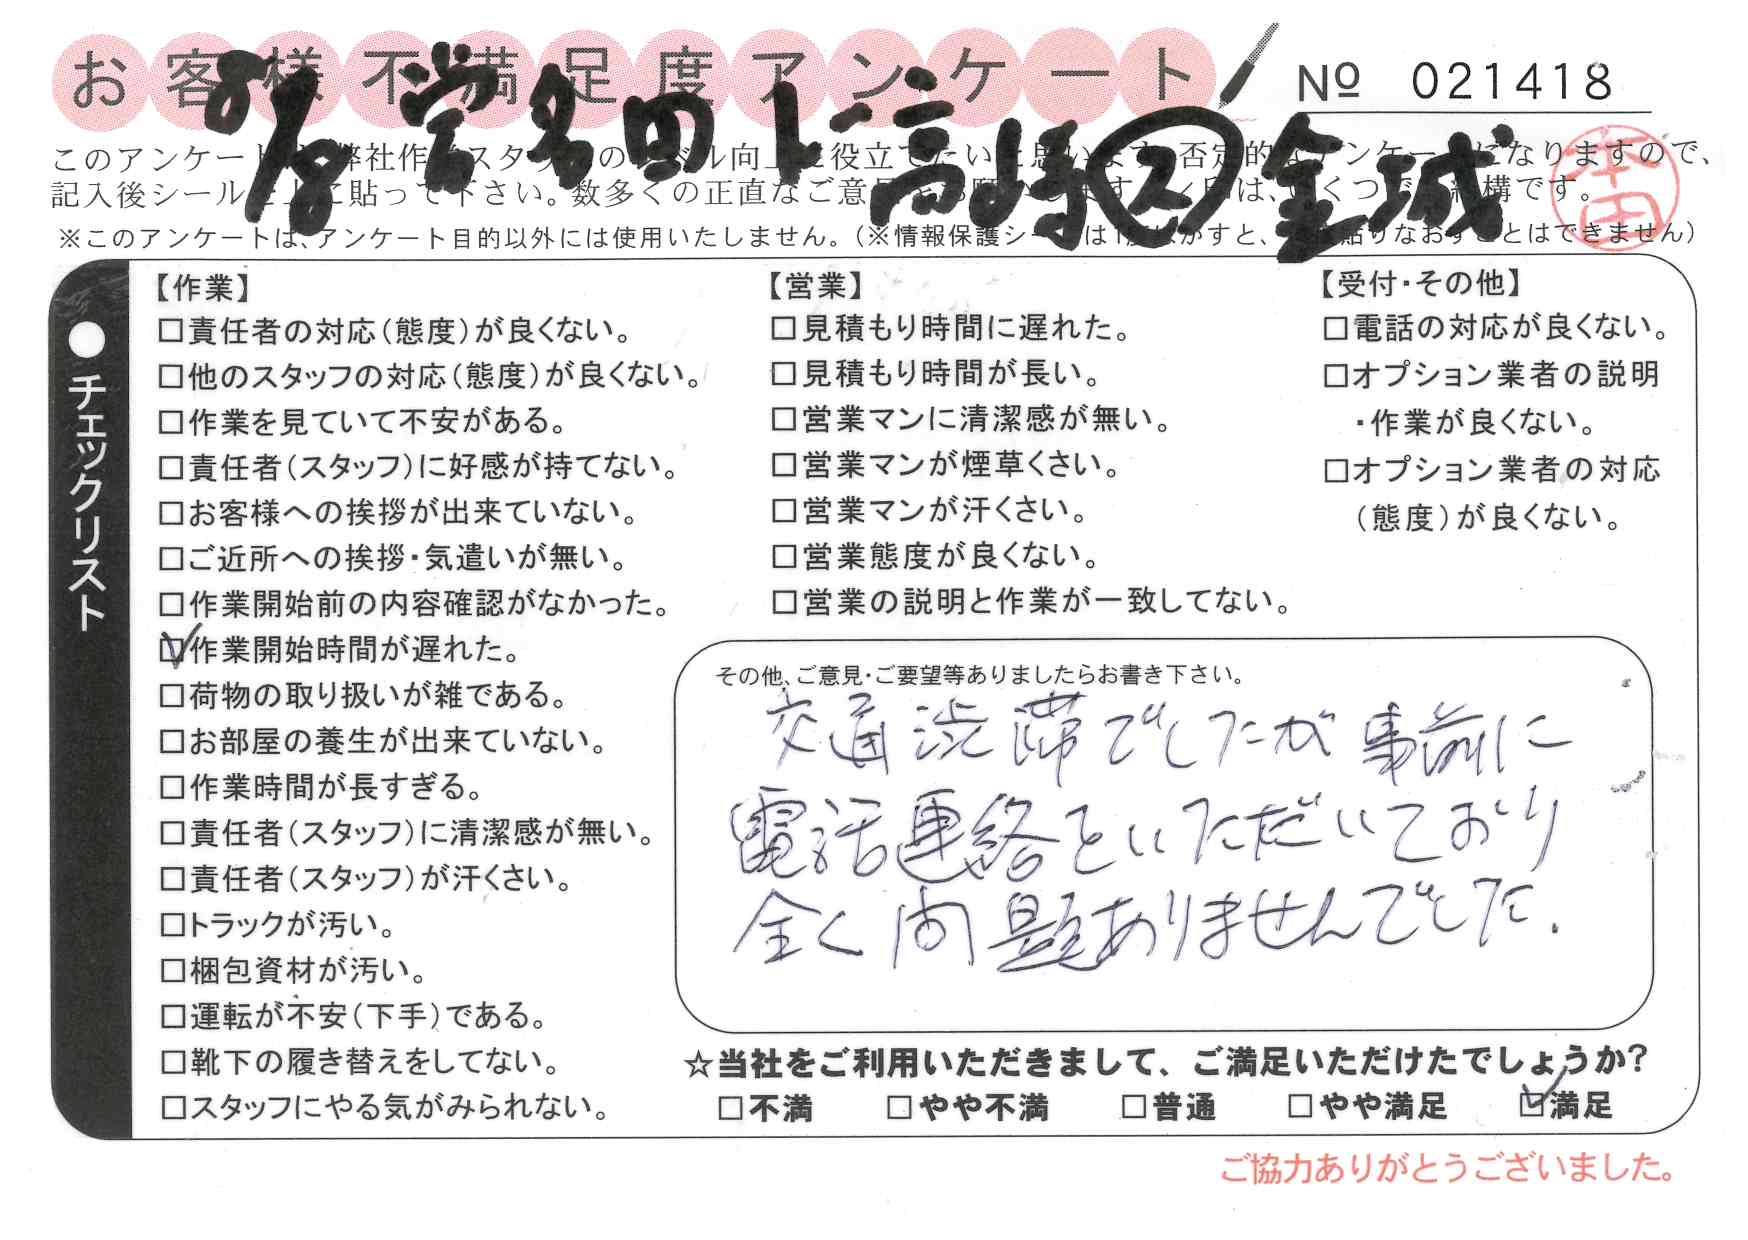 お客様不満足度アンケート
Nº 021418
このアンケートは、弊社作業スタッフのレベル向上に役立てたいと思います。否定的なアンケートになりますので、
記入後シールを上に貼って下さい。数多くの正直なご意見をお願いします。レ印は、いくつでも結構です。
※このアンケートは、アンケート目的以外には使用いたしません。(※情報保護シールは1度はがすと、再度貼りなおすことはできません)
本田
●チェックリスト
【作業】
□責任者の対応(態度)が良くない。
□他のスタッフの対応(態度)が良くない。
□作業を見ていて不安がある。
□責任者(スタッフ)に好感が持てない。
□お客様への挨拶が出来ていない。
□ご近所への挨拶・気遣いが無い。
□作業開始前の内容確認がなかった。
☑作業開始時間が遅れた。
□荷物の取り扱いが雑である。
□お部屋の養生が出来ていない。
□作業時間が長すぎる。
□責任者(スタッフ)に清潔感が無い。
□責任者(スタッフ)が汗くさい。
□トラックが汚い。
□梱包資材が汚い。
□運転が不安(下手)である。
□靴下の履き替えをしてない。
□スタッフにやる気がみられない。
【営業】
□見積もり時間に遅れた。
□見積もり時間が長い。
□営業マンに清潔感が無い。
□営業マンが煙草くさい。
□営業マンが汗くさい。
□営業態度が良くない。
□営業の説明と作業が一致してない。
【受付・その他】
□電話の対応が良くない。
□オプション業者の説明
・作業が良くない。
□オプション業者の対応
(態度)が良くない。
その他、ご意見・ご要望等ありましたらお書き下さい。
交通渋滞でしたが事前に
電話連絡をいただいており
全く問題ありませんでした.
☆当社をご利用いただきまして、ご満足いただけたでしょうか?
□不満 □やや不満 □普通 □やや満足 ☑満足
ご協力ありがとうございました。